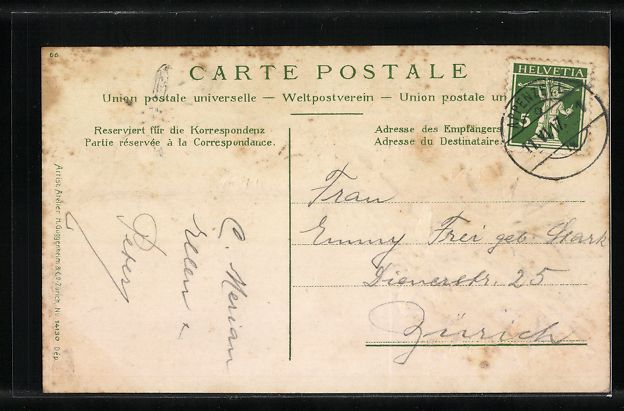 66
CARTE POSTALE
Union postale universelle – Weltpostverein – Union postale un
Reserviert für die Korrespondenz
Partie réservée à la Correspondance.
Adresse des Empfängers
Adresse du Destinataire
HELVETIA
5
Frau
Emmy Frei geb. Stark
Dienerstr. 25
Zürich
C. Merian
Ellen &
Peter
Artist. Atelier H. Guggenheim & Co. Zürich, Nr. 14130 Dép.